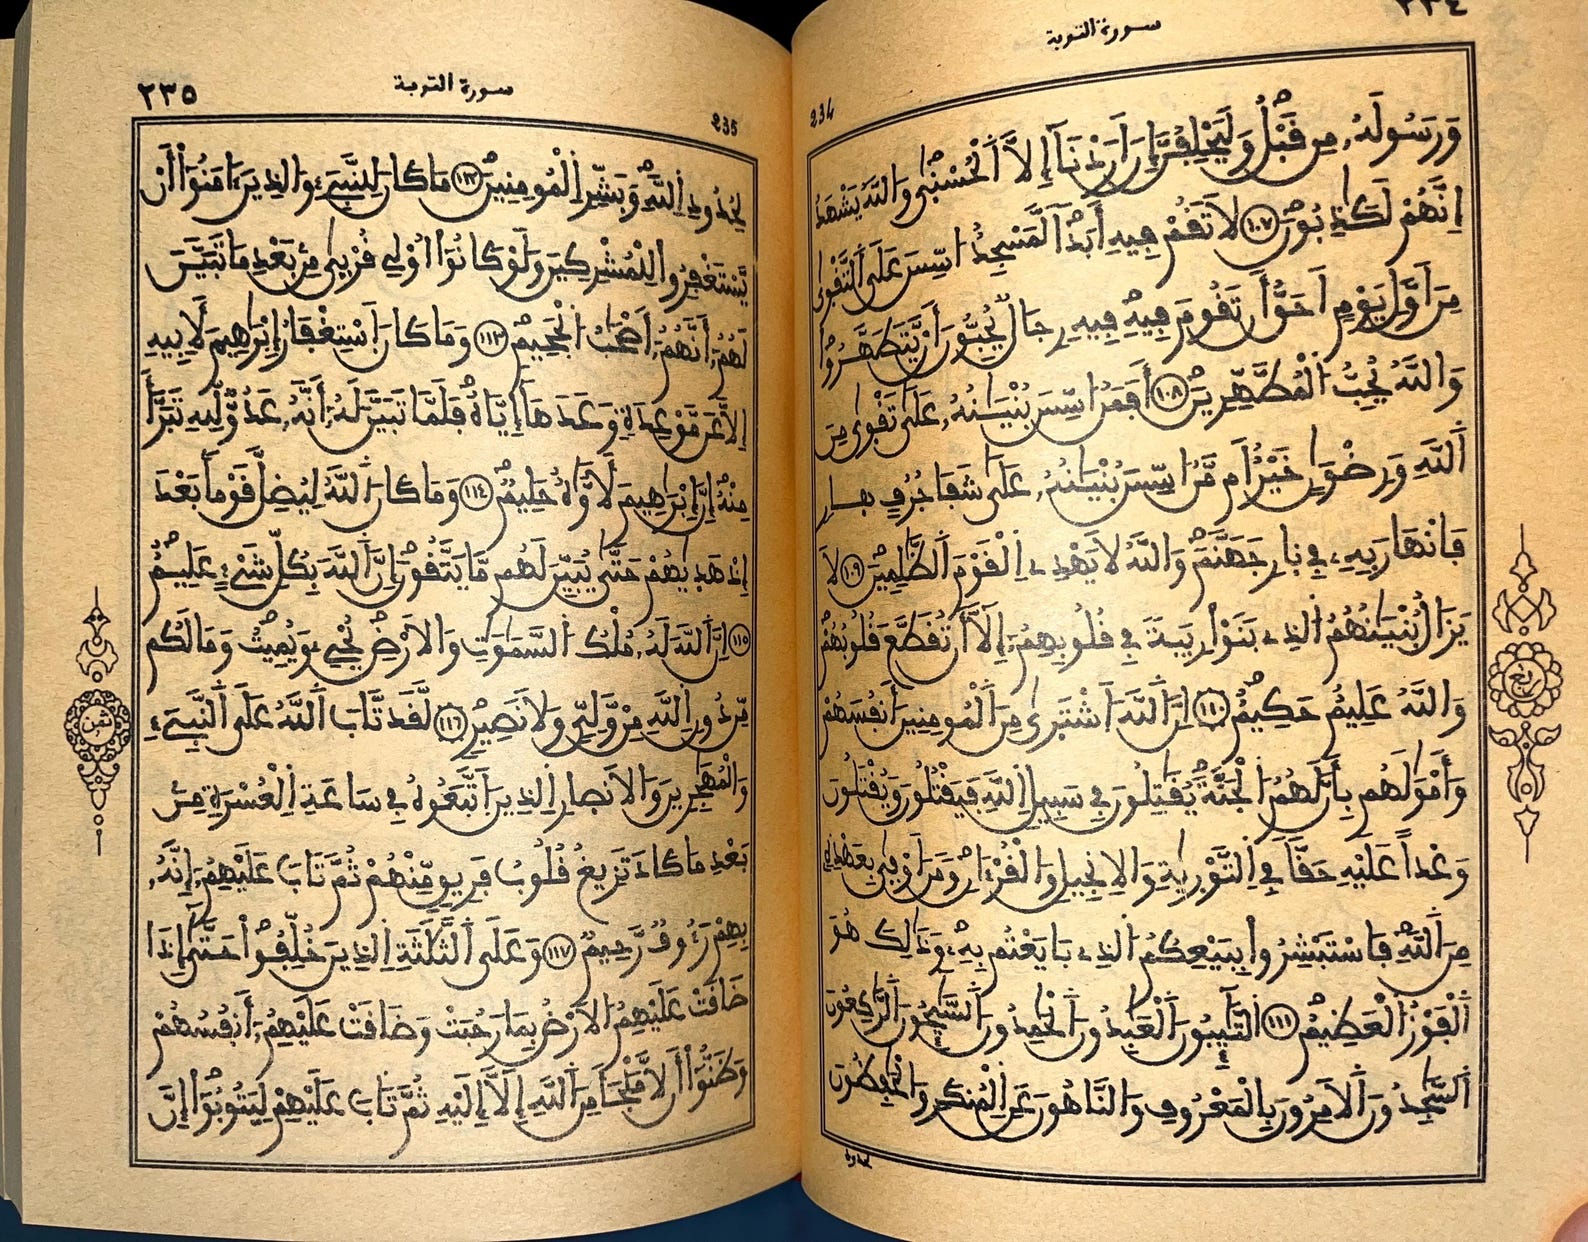 ٢٣٤
سورة التوبة
234
وَرَسُولَهُۥ مِن قَبْلُ وَلَيَحْلِفُنَّ إِنْ أَرَدْنَآ إِلَّا اَ۬لْحُسْنَىٰ وَاللَّهُ يَشْهَدُ
إِنَّهُمْ لَكَٰذِبُونَ ١٠٧ لَا تَقُمْ فِيهِ أَبَدًا لَّمَسْجِدٌ اسِّسَ عَلَى اَ۬لتَّقْوَىٰ
مِنَ اَوَّلِ يَوْمٍ اَحَقُّ أَن تَقُومَ فِيهِ فِيهِ رِجَالٌ يُحِبُّونَ أَنْ يَّتَطَهَّرُواْ
وَاللَّهُ يُحِبُّ اُ۬لْمُطَّهِّرِينَ ١٠٨ أَفَمَنُ اسِّسَ بُنْيَٰنُهُۥ عَلَىٰ تَقْوَىٰ مِنَ
اَ۬للَّهِ وَرِضْوَٰنٍ خَيْرٌ اَم مَّنُ اسِّسَ بُنْيَٰنُهُۥ عَلَىٰ شَفَا جُرُفٍ هَارٍ
فَانْهَارَ بِهِۦ فِي نَارِ جَهَنَّمَ وَاللَّهُ لَا يَهْدِے اِ۬لْقَوْمَ اَ۬لظَّٰلِمِينَ ١٠٩ لَا
يَزَالُ بُنْيَٰنُهُمُ اُ۬لذِے بَنَوْاْ رِيبَةً فِي قُلُوبِهِمُۥٓ إِلَّآ أَن تُقَطَّعَ قُلُوبُهُمْ
وَاللَّهُ عَلِيمٌ حَكِيمٌ ١١٠ إِنَّ اَ۬للَّهَ اَ۪شْتَرَىٰ مِنَ اَ۬لْمُومِنِينَ أَنفُسَهُمْ
وَأَمْوَٰلَهُم بِأَنَّ لَهُمُ اُ۬لْجَنَّةَ يُقَٰتِلُونَ فِي سَبِيلِ اِ۬للَّهِ فَيَقْتُلُونَ وَيُقْتَلُونَ
وَعْدًا عَلَيْهِ حَقًّا فِي اِ۬لتَّوْرَىٰةِ وَالِانجِيلِ وَالْقُرْءَانِ وَمَنَ اَوْفَىٰ بِعَهْدِهِۦ
مِنَ اَ۬للَّهِ فَاسْتَبْشِرُواْ بِبَيْعِكُمُ اُ۬لذِے بَايَعْتُم بِهِۦ وَذَٰلِكَ هُوَ
اَ۬لْفَوْزُ اُ۬لْعَظِيمُ ١١١ اَ۬لتَّٰٓئِبُونَ اَ۬لْعَٰبِدُونَ اَ۬لْحَٰمِدُونَ اَ۬لسَّٰٓئِحُونَ اَ۬لرَّٰكِعُونَ
اَ۬لسَّٰجِدُونَ اَ۬لَامِرُونَ بِالْمَعْرُوفِ وَالنَّاهُونَ عَنِ اِ۬لْمُنكَرِ وَالْحَٰفِظُونَ
لحدود
ربع
٢٣٥
سورة التوبة
235
لِحُدُودِ اِ۬للَّهِ وَبَشِّرِ اِ۬لْمُومِنِينَ ١١٢ مَا كَانَ لِلنَّبِيٓءِ وَالذِينَ ءَامَنُوٓاْ أَنْ
يَّسْتَغْفِرُواْ لِلْمُشْرِكِينَ وَلَوْ كَانُوٓاْ أُوْلِي قُرْبَىٰ مِنۢ بَعْدِ مَا تَبَيَّنَ
لَهُمُۥٓ أَنَّهُمُۥٓ أَصْحَٰبُ اُ۬لْجَحِيمِ ١١٣ وَمَا كَانَ اَ۪سْتِغْفَارُ إِبْرَٰهِيمَ لِأَبِيهِ
إِلَّا عَن مَّوْعِدَةٍ وَعَدَهَآ إِيَّاهُ فَلَمَّا تَبَيَّنَ لَهُۥٓ أَنَّهُۥ عَدُوٌّ لِّلهِ تَبَرَّأَ
مِنْهُ إِنَّ إِبْرَٰهِيمَ لَأَوَّٰهٌ حَلِيمٌ ١١٤ وَمَا كَانَ اَ۬للَّهُ لِيُضِلَّ قَوْمًا بَعْدَ
إِذْ هَدَىٰهُمْ حَتَّىٰ يُبَيِّنَ لَهُم مَّا يَتَّقُونَ إِنَّ اَ۬للَّهَ بِكُلِّ شَيْءٍ عَلِيمٌ
١١٥ إِنَّ اَ۬للَّهَ لَهُۥ مُلْكُ اُ۬لسَّمَٰوَٰتِ وَالَارْضِ يُحْيِۦ وَيُمِيتُ وَمَا لَكُم
مِّن دُونِ اِ۬للَّهِ مِنْ وَّلِيٍّ وَلَا نَصِيرٍ ١١٦ لَّقَد تَّابَ اَ۬للَّهُ عَلَى اَ۬لنَّبِيٓءِ
وَالْمُهَٰجِرِينَ وَالَانصَارِ اِ۬لذِينَ اَ۪تَّبَعُوهُ فِي سَاعَةِ اِ۬لْعُسْرَةِ مِنۢ
بَعْدِ مَا كَادَ تَزِيغُ قُلُوبُ فَرِيقٍ مِّنْهُمْ ثُمَّ تَابَ عَلَيْهِمُۥٓ إِنَّهُۥ
بِهِمْ رَءُوفٌ رَّحِيمٌ ١١٧ وَعَلَى اَ۬لثَّلَٰثَةِ اِ۬لذِينَ خُلِّفُواْ حَتَّىٰٓ إِذَا
ضَاقَتْ عَلَيْهِمُ اُ۬لَارْضُ بِمَا رَحُبَتْ وَضَاقَتْ عَلَيْهِمُۥٓ أَنفُسُهُمْ
وَظَنُّوٓاْ أَن لَّا مَلْجَأَ مِنَ اَ۬للَّهِ إِلَّآ إِلَيْهِ ثُمَّ تَابَ عَلَيْهِمْ لِيَتُوبُوٓاْ إِنَّ
ثمن